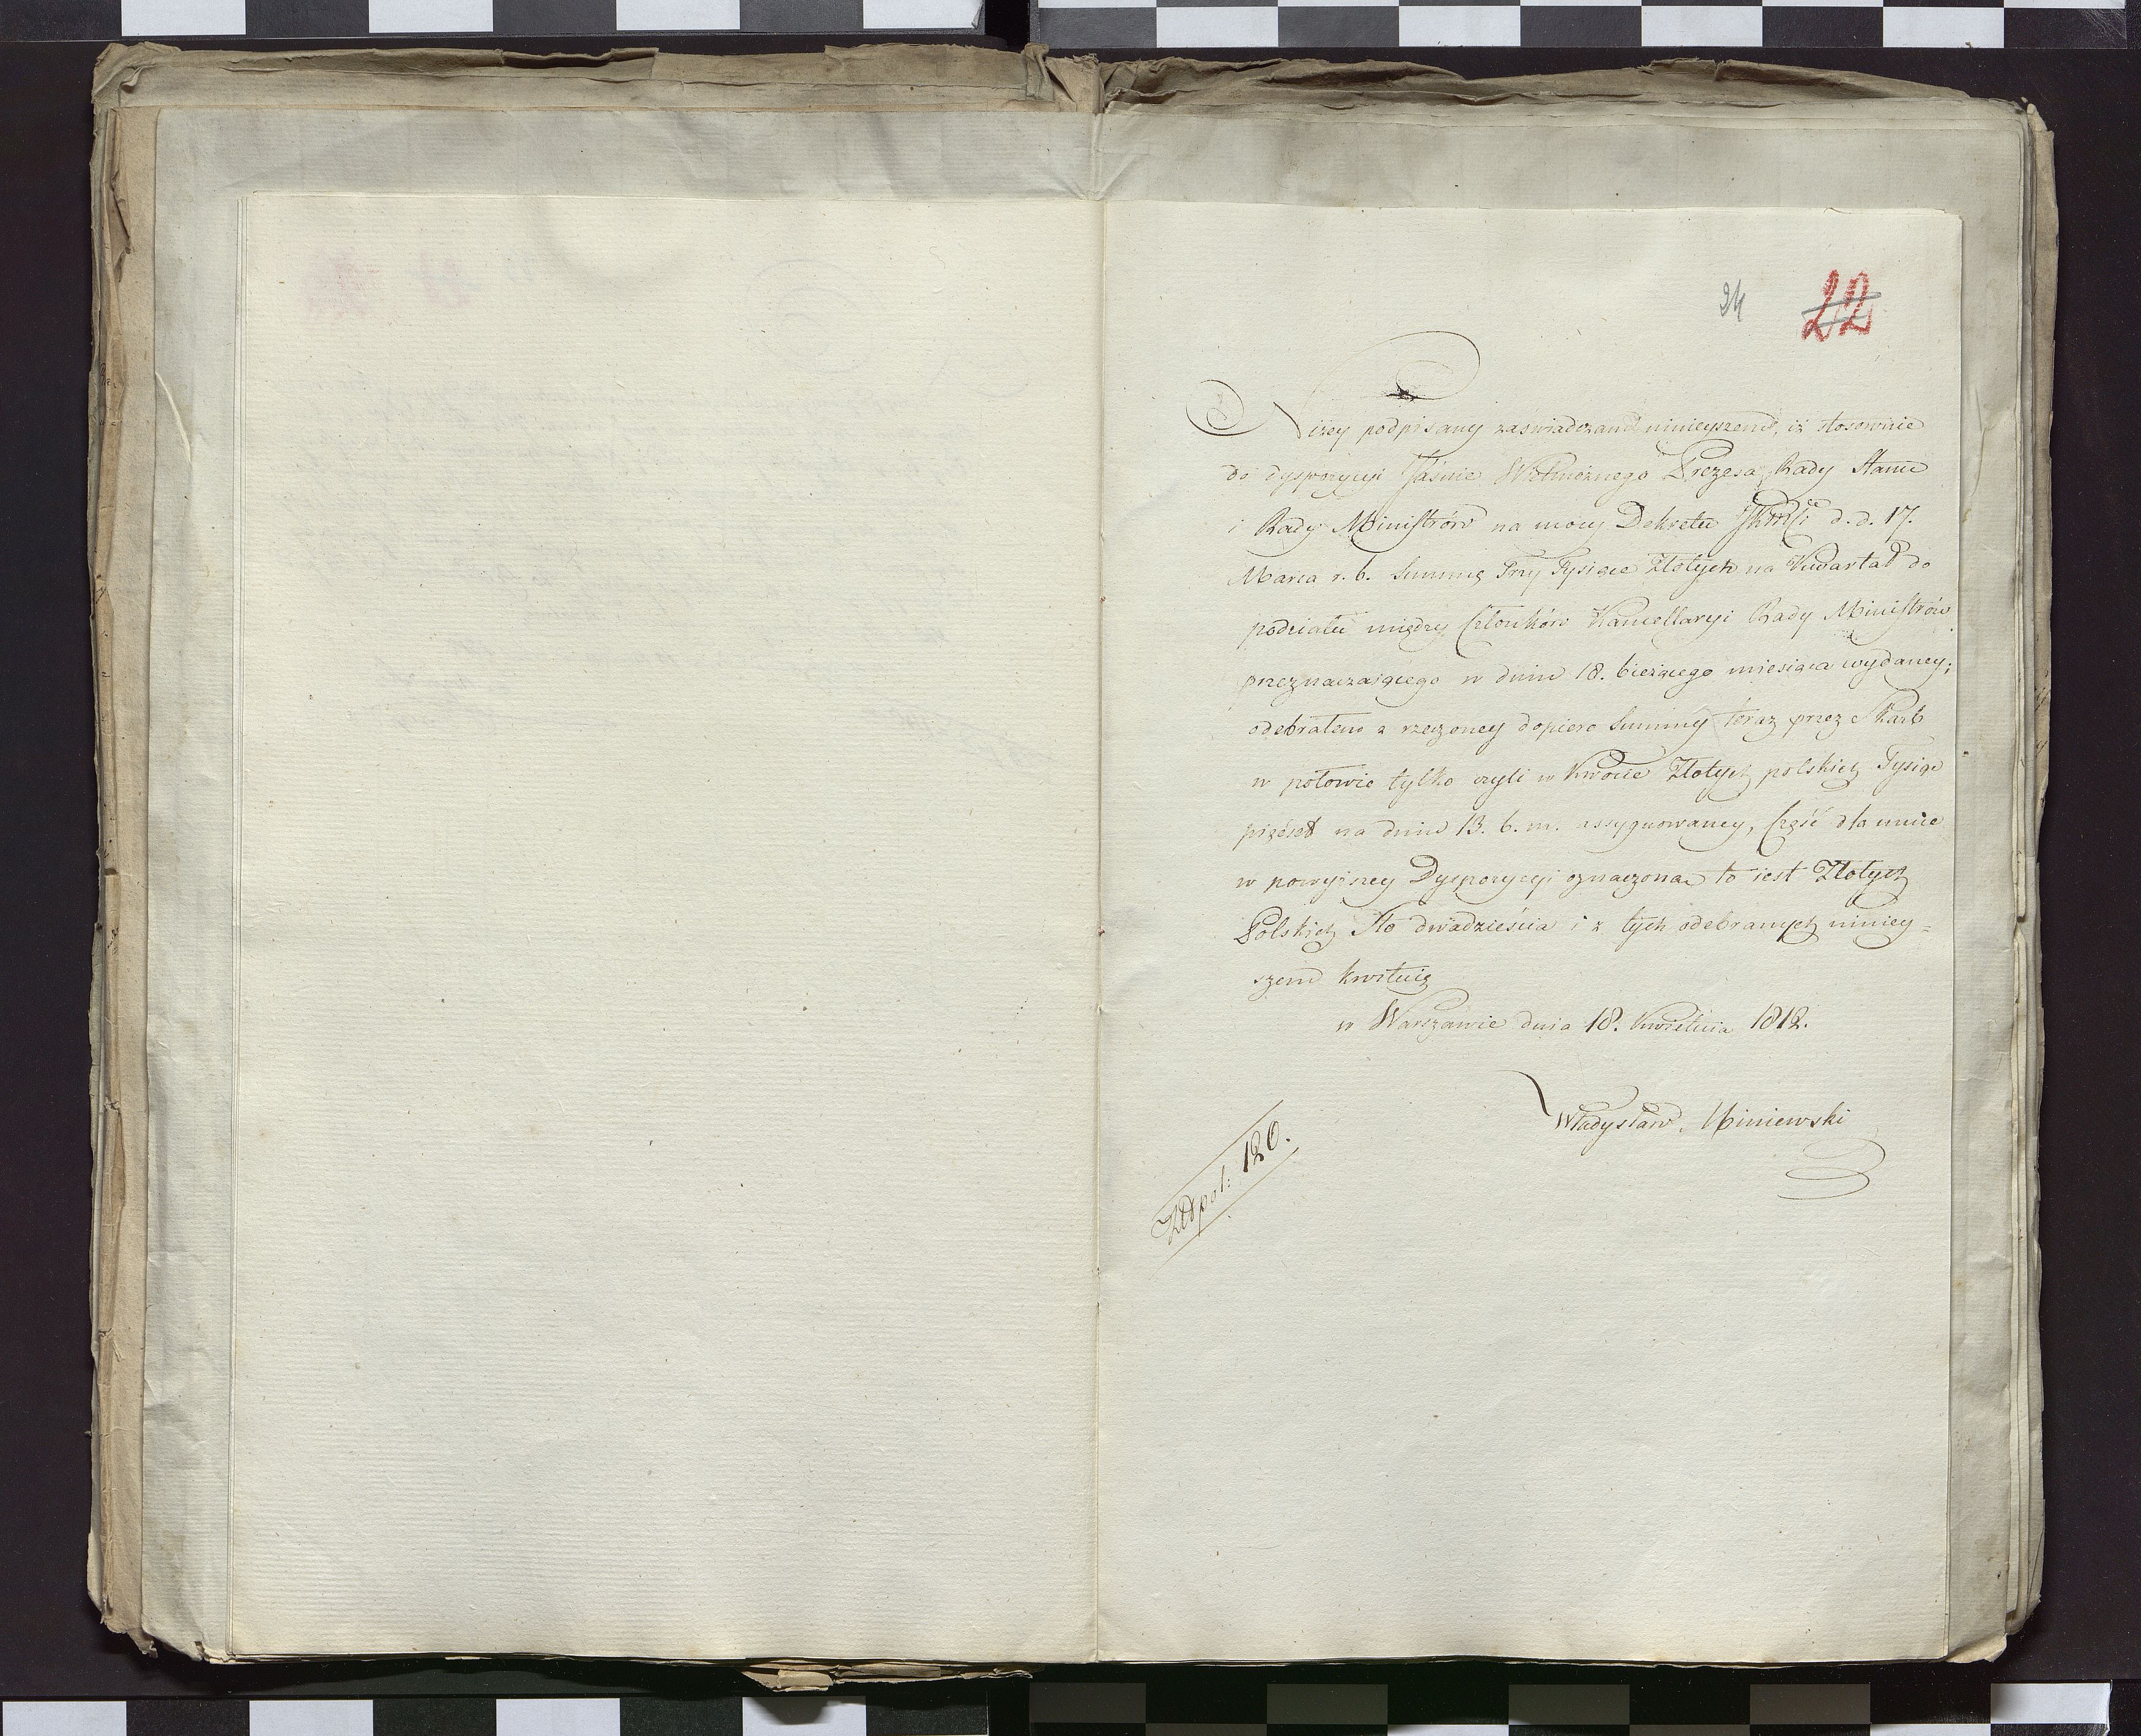 24 22
Niżey podpisany zaświadczam ninieyszem, iż stosownie
do dyspozycyi Jaśnie Wielmożnego Prezesa Rady Stanu
i Rady Ministrów na mocy Dekretu JKMści d. d. 17.
Marca r. b. Summę Trzy Tysiące Złotych na Kwartał do
podziału między Członków Kancellaryi Rady Ministrów
przeznaczaiącego w dniu 18. bieżącego miesiąca wydaney;
odebrałem z rzeczoney dopiero Summy teraz przez Skarb
w połowie tylko czyli w kwocie Złotych polskich Tysiąc
pięćset na dniu 13. b. m. assygnowaney, Część dla mnie
w powyższey Dyspozycyi oznaczoną to iest Złotych
Polskich Sto dwadzieścia i z tych odebranych niniey=
szem kwituię
w Warszawie dnia 18. Kwietnia 1812.
Władysław Miniewski
Złł pol: 120.